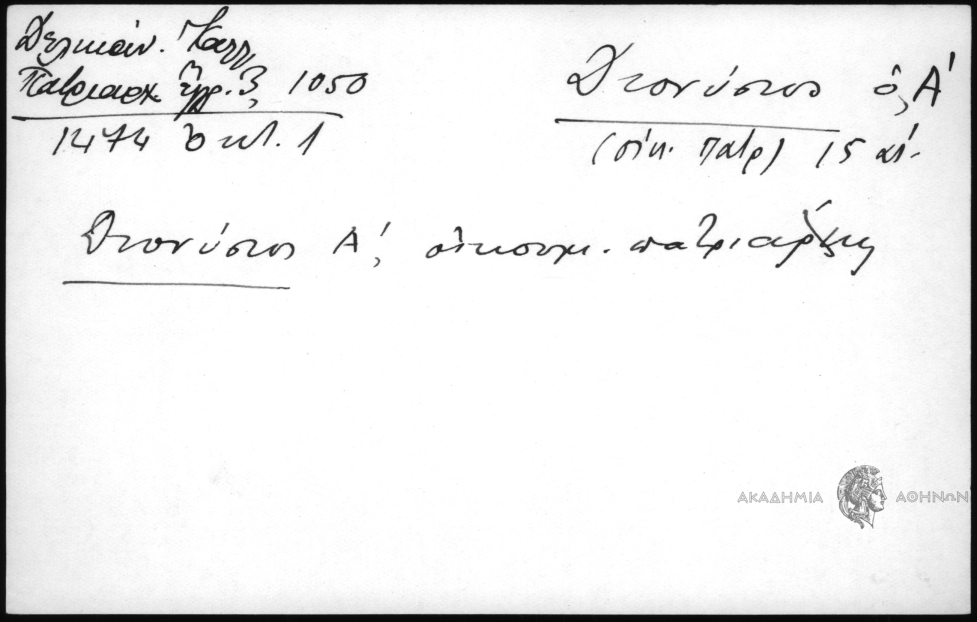 Δελικάν. Καλλ
Πατριαρχ. Ἔγγρ. 3, 1050
1474 Ὀκτ. 1
Διονύσιος ὁ Α΄
(οἰκ. Πατρ) 15 αἰ.
Διονύσιος Α΄, οἰκουμ. πατριάρχης
ΑΚΑΔΗΜΙΑ ΑΘΗΝΩΝ